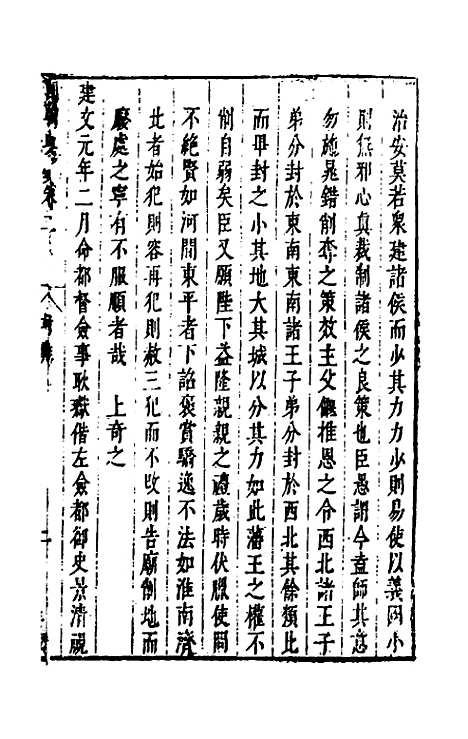 治安莫若衆建諸侯而少其力力少則易使以義國小
則無邪心真裁制諸侯之良策也臣愚謂今宜師其意
勿施晁錯削奪之策效主父偃推恩之令西北諸王子
弟分封於東南東南諸王子弟分封於西北其餘類比
而畢封之小其地大其城以分其力如此藩王之權不
削自弱矣臣又願陛下益隆親親之禮歲時伏臘使問
不絕賢如河間東平者下詔褒賞驕逸不法如淮南濟
北者始犯則容再犯則赦三犯而不改則告廟削地而
廢處之寧有不服順者哉　上奇之
建文元年二月命都督僉事耿瓛偕左僉都御史景清視